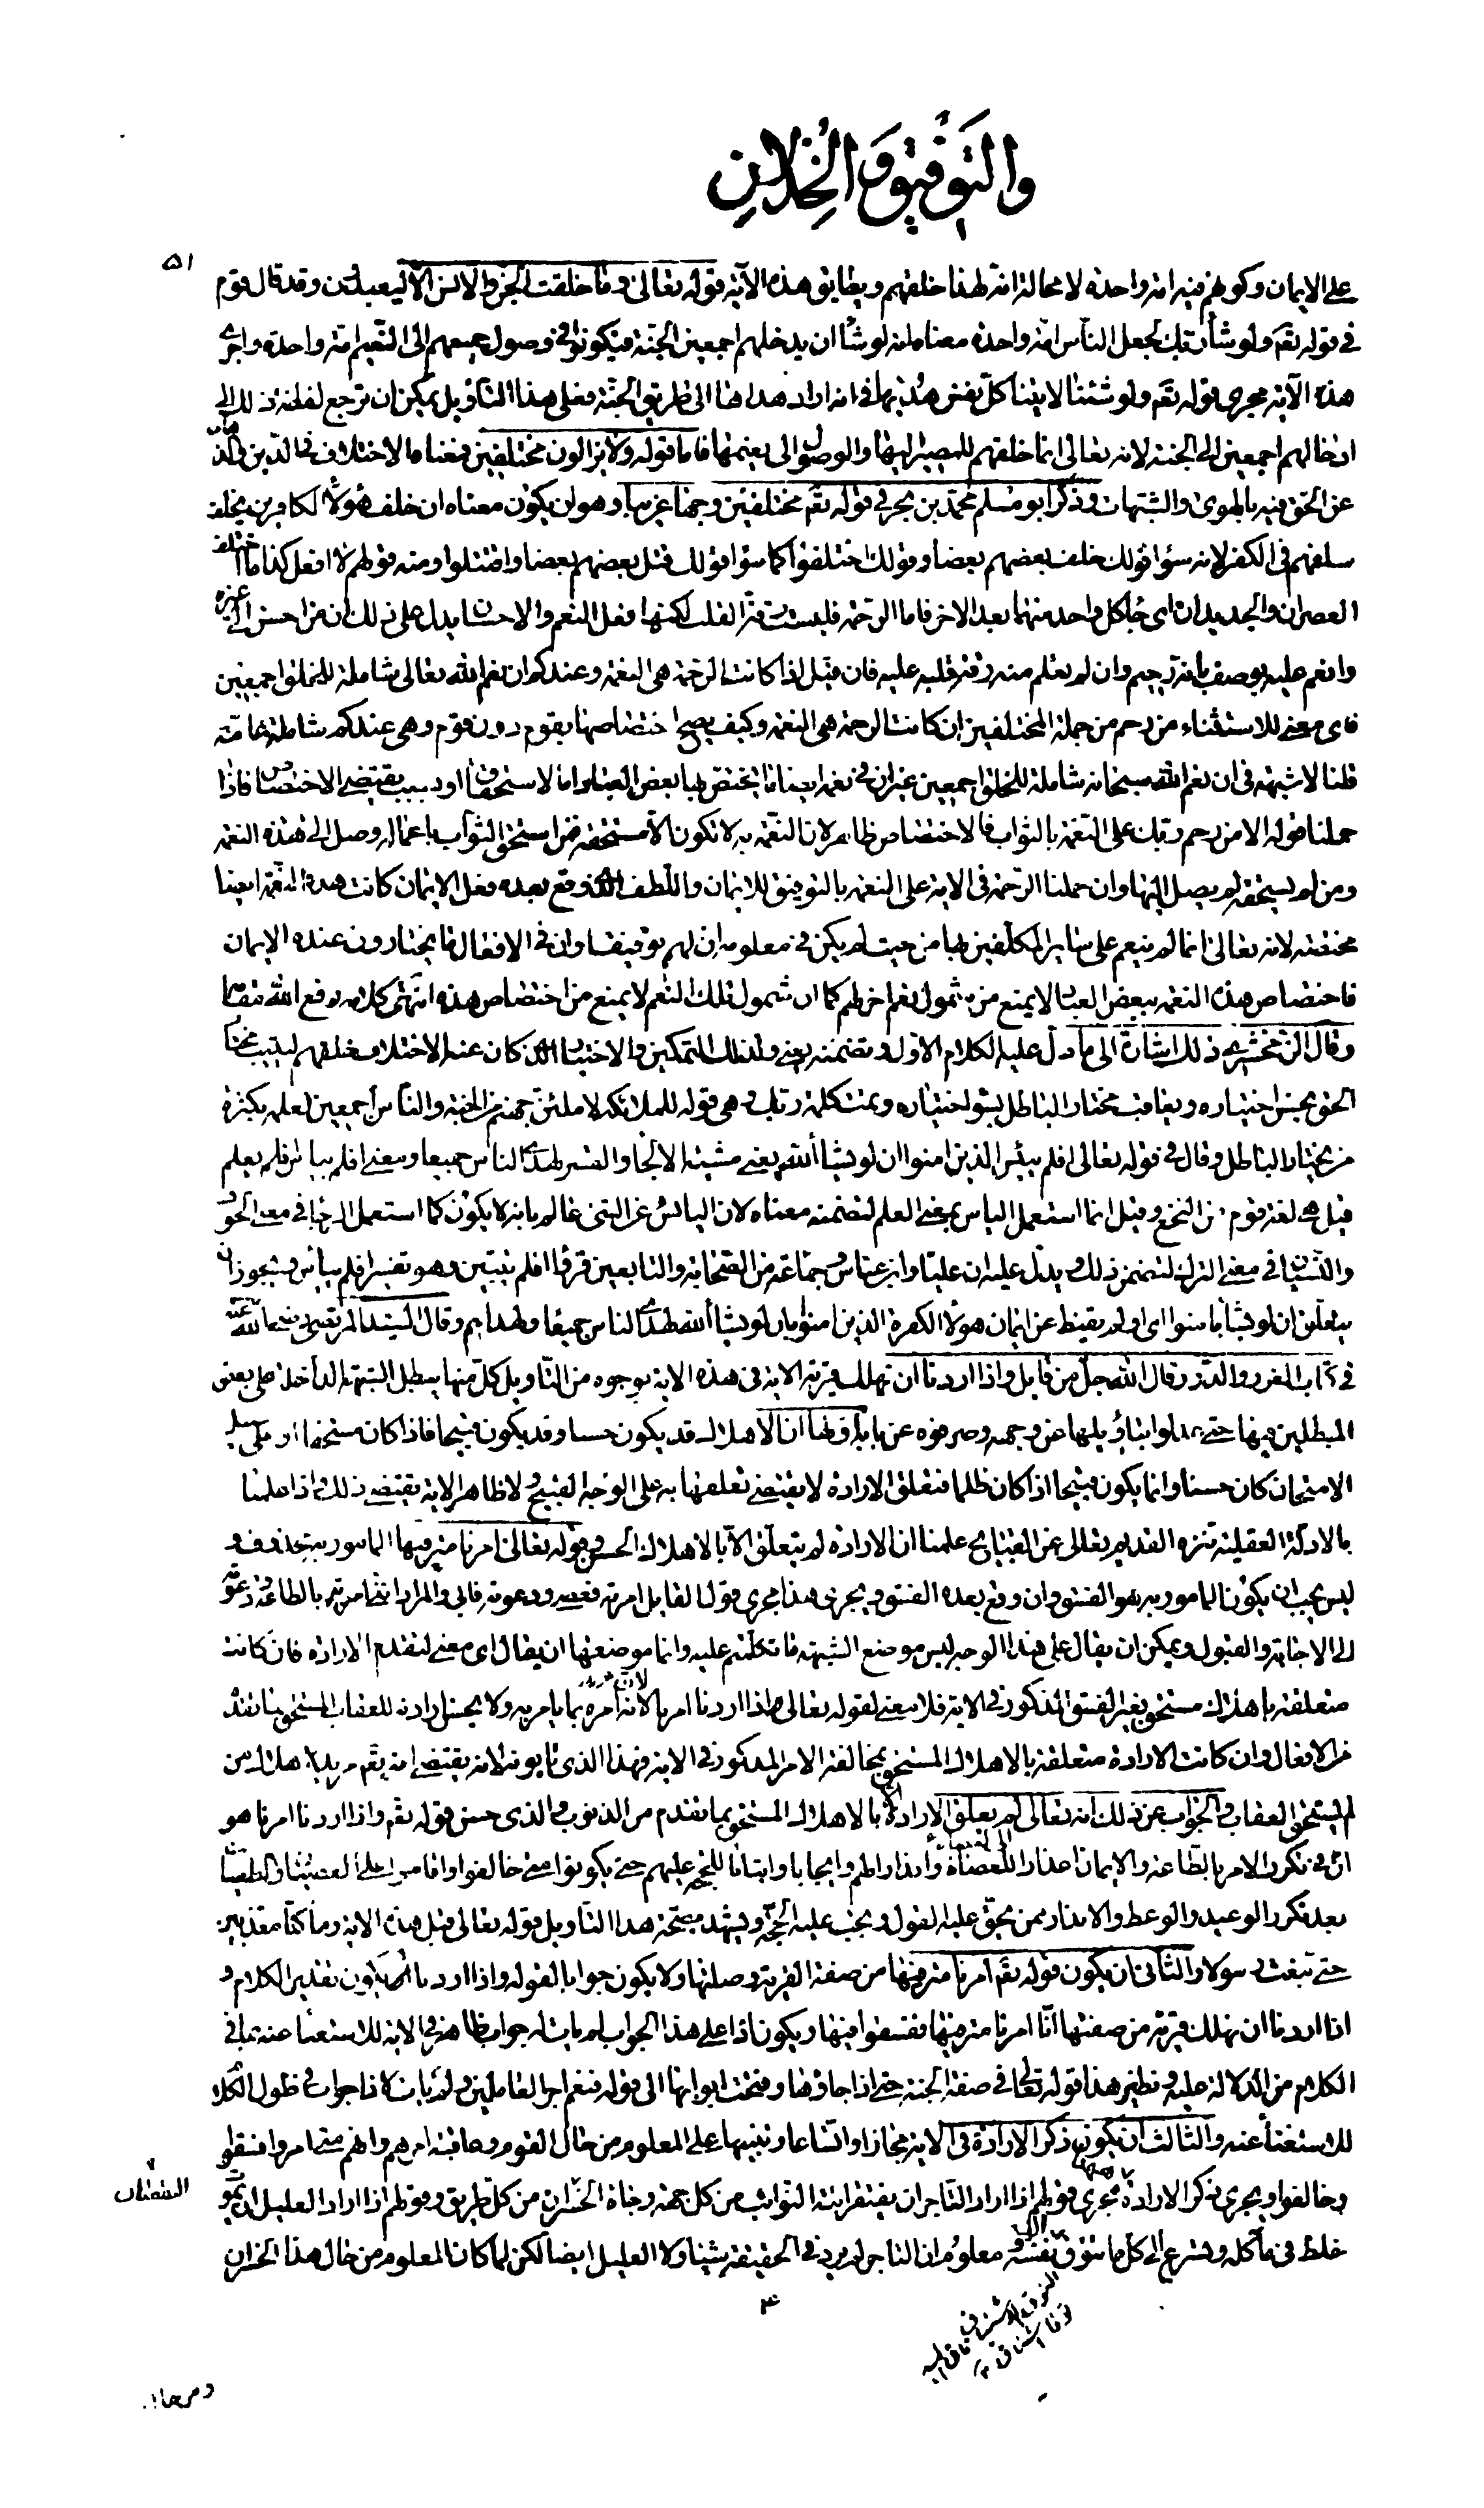 والتوفيق والخذلان
٥١
على الايمان وكونهم فيه امة واحدة لا محالة انه لهذا خلقهم ويطابق هذه الآية قوله تعالى وما خلقت الجن والانس الا ليعبدون وقد قال قوم
في قوله تعم ولو شاء ربك لجعل الناس امة واحدة معناه انه لو شاء ان يدخلهم اجمعين الجنة فيكونوا في وصول جميعهم الى النعيم امة واحدة واجرى
هذه الآية مجرى قوله تعم ولو شئنا لاتينا كل نفس هديها في انه اراد هداها الى طريق الجنة فعلى هذا التأويل يمكن ان ترجع لفظة ذلك الى
ادخالهم اجمعين الى الجنة لانه تعالى انما خلقهم للمصير اليها والوصول الى نعيمها فاما قوله ولا يزالون مختلفين فمعناه الاختلاف في الدين والذهاب
عن الحق فيه بالهوى والشبهات وذكر ابو مسلم محمد بن بحر في قوله تعم مختلفين وجها غريبا وهو ان يكون معناه ان خلف هؤلاء الكافرين يخلف
سلفهم في الكفر لانه سواء قولك خلف بعضهم بعضا وقولك اختلفوا كما سواء قولك قتل بعضهم بعضا واقتتلوا ومنه قولهم لا افعل كذا ما اختلف
العصران والجديدان اى جاء كل واحد منهما بعد الاخر فاما الرحمة فليست رقة القلب لكنها فعل النعم والاحسان يدل على ذلك ان من احسن الى غيره
وانعم عليه يوصف بانه رحيم وان لم تعلم منه رقة قلبه عليه فان قيل اذا كانت الرحمة هى النعمة وعندكم ان نعم الله تعالى شاملة للخلق اجمعين
فاى معنى للاستثناء من رحم من جملة المختلفين ان كانت الرحمة هى النعمة وكيف يصح اختصاصها بقوم دون قوم وهى عندكم شاملة عامة
قلنا لا شبهة في ان نعم الله سبحانه شاملة للخلق اجمعين غير ان في نعمه ايضا ما يختص بها بعض العباد اما لاستحقاق او بسبب يقتضى الاختصاص فاذا
حملنا قوله الا من رحم ربك على النعمة بالثواب فالاختصاص ظاهر لان النعمة به لا تكون الا مستحقة فمن استحق الثواب باعماله وصل الى هذه النعمة
ومن لم يستحقه لم يصل اليها وان حملنا الرحمة في الاية على النعمة بالتوفيق للايمان واللطف الذى وقع بعده فعل الايمان كانت هذه النعمة ايضا
مختصة لانه تعالى انما لم ينعم على سائر المكلفين بها من حيث لم يكن في معلومه ان لهم توفيقا وان في الافعال ما يختارون عنده الايمان
فاختصاص هذه النعمة ببعض العباد لا يمنع من شمول نعم اخر لهم كما ان شمول تلك النعم لا يمنع من اختصاص هذه انتهى كلامه رفع الله مقامه
وقال الزمخشرى ذلك اشارة الى ما دل عليه الكلام الاول وتضمنه يعنى ولذلك التمكين والاختيار الذى كان عنه الاختلاف خلقهم ليثيب مختار
الحق بحسن اختياره ويعاقب مختار الباطل بسوء اختياره وتمت كلمة ربك وهى قوله للملائكة لاملئن جهنم من الجنة والناس اجمعين لعلمه بكثرة
من يختار الباطل وقال في قوله تعالى افلم ييئس الذين امنوا ان لو يشاء الله يعنى مشية الالجاء والقسر لهدى الناس جميعا ومعنى افلم يياس افلم يعلم
قيل هى لغة قوم من النخع وقيل انما استعمل الياس بمعنى العلم لتضمنه معناه لان اليائس عن الشئ عالم بانه لا يكون كما استعمل الرجاء في معنى الخوف
والنسيان في معنى الترك لتضمن ذلك ويدل عليه ان عليا وابن عباس وجماعة من الصحابة والتابعين قرؤا افلم يتبين وهو تفسير افلم يياس ويجوز ان
يتعلق ان لو يشاء بامنوا اى اولم يقنط عن ايمان هؤلاء الكفرة الذين امنوا بان لو يشاء الله لهدى الناس جميعا ولهداهم وقال السيد المرتضى رضى الله عنه
في كتاب الغرر والدرر قال الله جل من قائل واذا اردنا ان نهلك قرية الاية في هذه الاية وجوه من التاويل كل منها يبطل الشبهة الداخلة على بعض
المبطلين فيها حتى عدلوا بتأويلها عن وجهه وصرفوه عن بابه اولها ان الاهلاك قد يكون حسنا وقد يكون قبيحا فاذا كان مستحقا او على سبيل
الامتحان كان حسنا وانما يكون قبيحا اذا كان ظلما فتعلق الارادة لا يقتضى تعلقها به على الوجه القبيح ولا ظاهر الاية يقتضى ذلك واذا علمنا
بالادلة العقلية تنزه القديم تعالى عن القبايح علمنا ان الارادة لم يتعلق الا بالاهلاك الحسن وقوله تعالى امرنا مترفيها المامور به محذوف و
ليس يجب ان يكون المامور به هو الفسق وان وقع بعده الفسق ويجرى هذا مجرى قول القايل امرته فعصى ودعوته فابى والمراد اننى امرته بالطاعة ودعوته
الى الاجابة والقبول ويمكن ان يقال على هذا الوجه ليس موضع الشبهة ما تكلتم عليه وانما موضعها ان يقال اى معنى لتقدم الارادة فان كانت
متعلقة باهلاك مستحق بغير الفسق المذكور في الاية فلا معنى لقوله تعالى واذا اردنا امرنا لان امره بما يامر به ولا يحسن ارادته للعقاب المستحق بما تقدم
من الافعال وان كانت الارادة متعلقة بالاهلاك المستحق بمخالفة الامر المذكور في الاية فهذا الذى تابونه لانه يقتضى انه تعم مريد لاهلاك من
لم يستحق العقاب والجواب عن ذلك انه تعالى لم يعلق الارادة الا بالاهلاك المستحق بما تقدم من الذنوب والذى حسن قوله تعم واذا اردنا امرنا هو
ان في تكرر الامر بالطاعة والايمان اعذارا للعصاة وانذارا لهم وايجابا واثباتا للحجة عليهم حتى يكونوا متى خالفوا واقاموا على العصيان والطغيان
بعد تكرر الوعيد والوعظ والانذار ممن يحق عليه القول ويجب عليه الحجة ويشهد بصحة هذا التاويل قوله تعالى قبل هذه الاية وما كنا معذبين
حتى نبعث رسولا والثانى ان يكون قوله تعم امرنا مترفيها من صفة القرية وصلتها ولا يكون جوابا لقوله واذا اردنا بل يكون تقدير الكلام و
اذا اردنا ان نهلك قرية من صفتها انا امرنا مترفيها ففسقوا فيها ويكون اذا على هذا الجواب لم يات له جواب ظاهر في الاية للاستغناء عنه بما في
الكلام من الدلالة عليه ونظير هذا قوله تعالى في صفة الجنة حتى اذا جاؤها وفتحت ابوابها الى قوله فنعم اجر العاملين ولم يات لاذا جواب في طول الكلام
للاستغناء عنه والثالث ان يكون ذكر الارادة في الاية مجازا واتساعا وتنبيها على المعلوم من حال القوم وعاقبة امرهم وانهم متى امروا فسقوا
وخالفوا ويجرى ذكر الارادة مجرى قولهم اذا اراد التاجر ان يفتقر اتته النوائب من كل جهة وجاءه الخسران من كل طريق وقولهم اذا اراد العليل ان يموت
خلط في ماكله وتسرع الى كل ما تتوق اليه نفسه ومعلوم ان التاجر لم يرد في الحقيقة شيئا ولا العليل ايضا لكن لما كان المعلوم من حال هذا الخسران